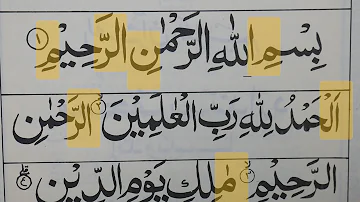 بِسْمِ اللهِ الرَّحْمٰنِ الرَّحِيْمِ ۝١
اَلْحَمْدُ لِلهِ رَبِّ الْعٰلَمِيْنَ ۝٢ الرَّحْمٰنِ
الرَّحِيْمِ ۝٣ مٰلِكِ يَوْمِ الدِّيْنِ ۝٤